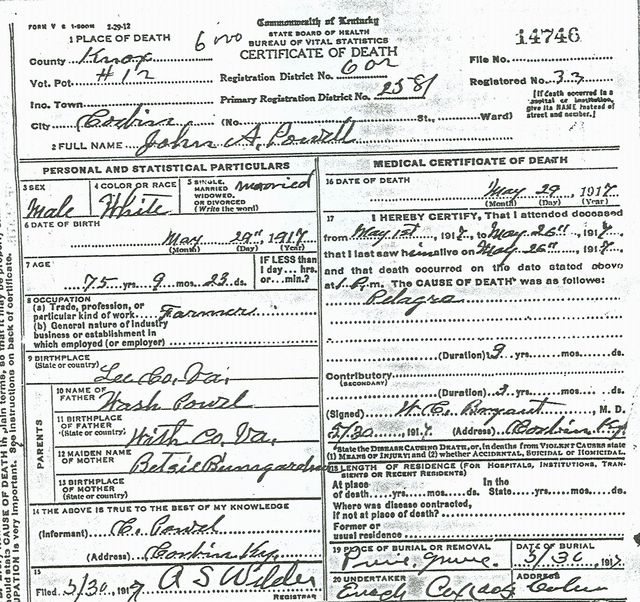 FORM V S 1-500M 2-29-12
Commonwealth of Kentucky
STATE BOARD OF HEALTH
BUREAU OF VITAL STATISTICS
CERTIFICATE OF DEATH
14746
1 PLACE OF DEATH
County Knox
Vot. Pct #12
Inc. Town
City Corbin
Registration District No. 602
Primary Registration District No. 2581
File No.
Registered No. 33
(No. St., Ward)
[If death occurred in a hospital or institution, give its NAME instead of street and number.]
2 FULL NAME John A. Powell
PERSONAL AND STATISTICAL PARTICULARS
3 SEX Male
4 COLOR OR RACE White
5 SINGLE, MARRIED, WIDOWED, OR DIVORCED (Write the word) married
6 DATE OF BIRTH
May 29th 1917
(Month) (Day) (Year)
7 AGE
75 yrs. 9 mos. 23 ds.
IF LESS than 1 day... hrs. or... min.?
8 OCCUPATION
(a) Trade, profession, or particular kind of work Farmer
(b) General nature of industry business or establishment in which employed (or employer)
9 BIRTHPLACE
(State or country) Lee Co. Va.
PARENTS
10 NAME OF FATHER Wash Powel
11 BIRTHPLACE OF FATHER (State or country) With Co. Va.
12 MAIDEN NAME OF MOTHER Betsie
13 BIRTHPLACE OF MOTHER (State or country)
14 THE ABOVE IS TRUE TO THE BEST OF MY KNOWLEDGE
(Informant) C. Powel
(Address) Corbin Ky.
15
Filed 5/30, 1917 A S Wilder
REGISTRAR
MEDICAL CERTIFICATE OF DEATH
16 DATE OF DEATH
May 29, 1917
(Month) (Day) (Year)
17 I HEREBY CERTIFY, That I attended deceased
from May 1st, 1917, to May 26th, 1917,
that I last saw him alive on May 26th, 1917,
and that death occurred on the date stated above
at 1 P.m. The CAUSE OF DEATH* was as follows:
Pelagra
(Duration) yrs. mos. ds.
Contributory
(SECONDARY)
(Duration) yrs. mos. ds.
(Signed) M. D.
5/30, 1917 (Address) Corbin Ky.
*State the DISEASE CAUSING DEATH, or, in deaths from VIOLENT CAUSES state (1) MEANS OF INJURY; and (2) whether ACCIDENTAL, SUICIDAL OR HOMICIDAL.
18 LENGTH OF RESIDENCE (FOR HOSPITALS, INSTITUTIONS, TRANSIENTS OR RECENT RESIDENTS)
At place of death yrs. mos. ds. In the State yrs. mos. ds.
Where was disease contracted, if not at place of death?
Former or usual residence
19 PLACE OF BURIAL OR REMOVAL
DATE OF BURIAL
5/30, 1917
20 UNDERTAKER
ADDRESS